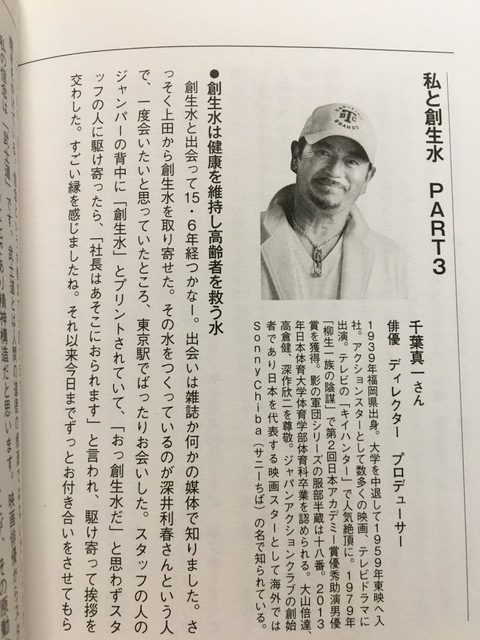 私と創生水 PART3
千葉真一さん
俳優 ディレクター プロデューサー
1939年福岡県出身。大学を中退して1959年東映へ入
社。アクションスターとして数多くの映画、テレビドラマに
出演。テレビの「キイハンター」で人気絶頂に。1979年
「柳生一族の陰謀」で第2回日本アカデミー賞優秀助演男優
賞を獲得。影の軍団シリーズの服部半蔵は十八番。2013
年日本体育大学体育学部体育科卒業を認められる。大山倍達、
高倉健、深作欣二を尊敬。ジャパンアクションクラブの創始
者であり日本を代表する映画スターとして海外では
Sonny Chiba(サニーちば)の名で知られている。
●創生水は健康を維持し高齢者を救う水
創生水と出会って15・6年経つかなー。出会いは雑誌か何かの媒体で知りました。さ
っそく上田から創生水を取り寄せた。その水をつくっているのが深井利春さんという人
で、一度会いたいと思っていたところ、東京駅でばったりお会いした。スタッフの人の
ジャンパーの背中に「創生水」とプリントされていて、「おっ創生水だ」と思わずスタ
ッフの人に駆け寄ったら、「社長はあそこにおられます」と言われ、駆け寄って挨拶を
交わした。すごい縁を感じましたね。それ以来今日までずっとお付き合いをさせてもら
精神構造だと思います。映画